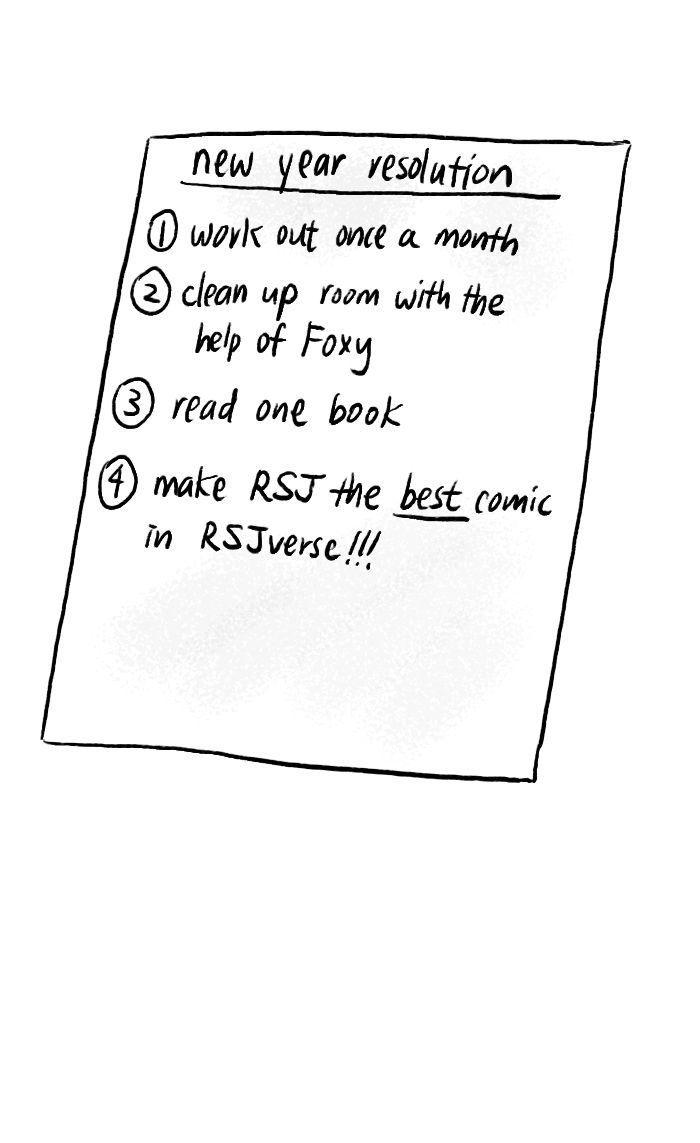 new year resolution
① work out once a month
② clean up room with the
help of Foxy
③ read one book
④ make RSJ the best comic
in RSJverse!!!